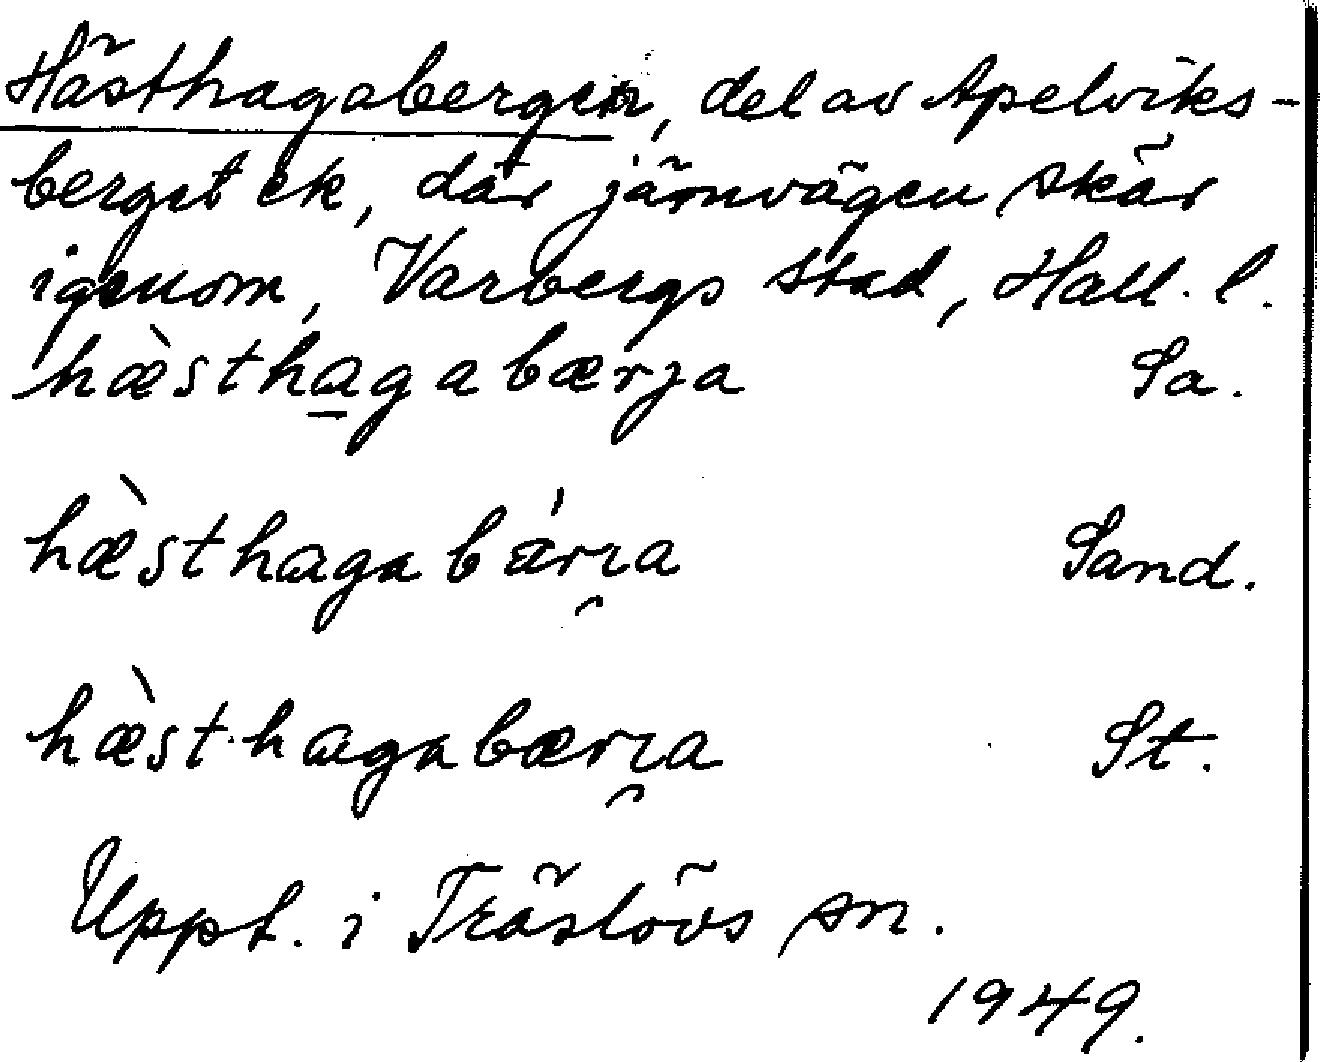 Hästhagabergen, del av Apelviks-
berget ek, där järnvägen skär
igenom, Varbergs stad, Hall. l.
hæ̀sthagabærja Sa.
hæ̀sthagabǽrɿa Sand.
hæ̀sthagabærɿa St.
Uppt. i Träslövs sn.
1949.